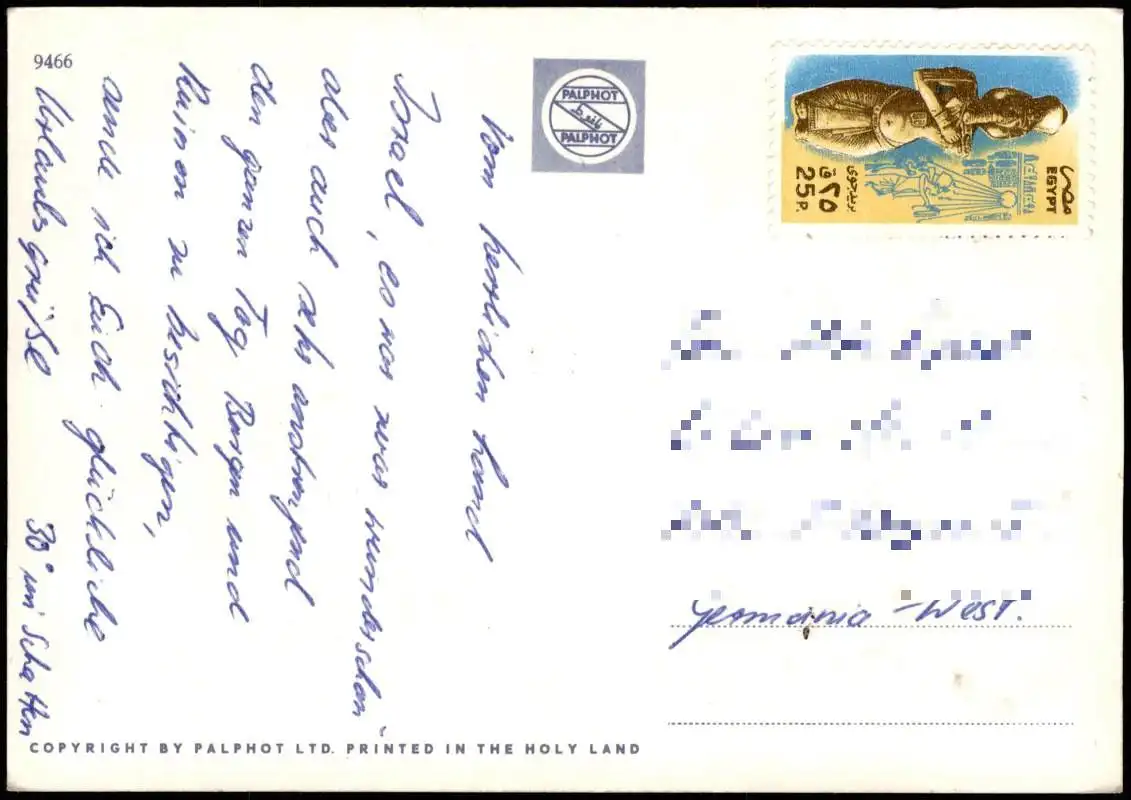 9466
PALPHOT
PALPHOT
مصر
EGYPT
بريد جوى
٢٥ق
25 P.
Vom herrlichen Land
Israel, es war zwar wunderschön
aber auch sehr anstrengend
den ganzen Tag Bergen und
Ruinen zu besichtigen,
ich Euch glückliche
Urlaubsgrüße
30° im Schatten
Germania - West.
COPYRIGHT BY PALPHOT LTD. PRINTED IN THE HOLY LAND